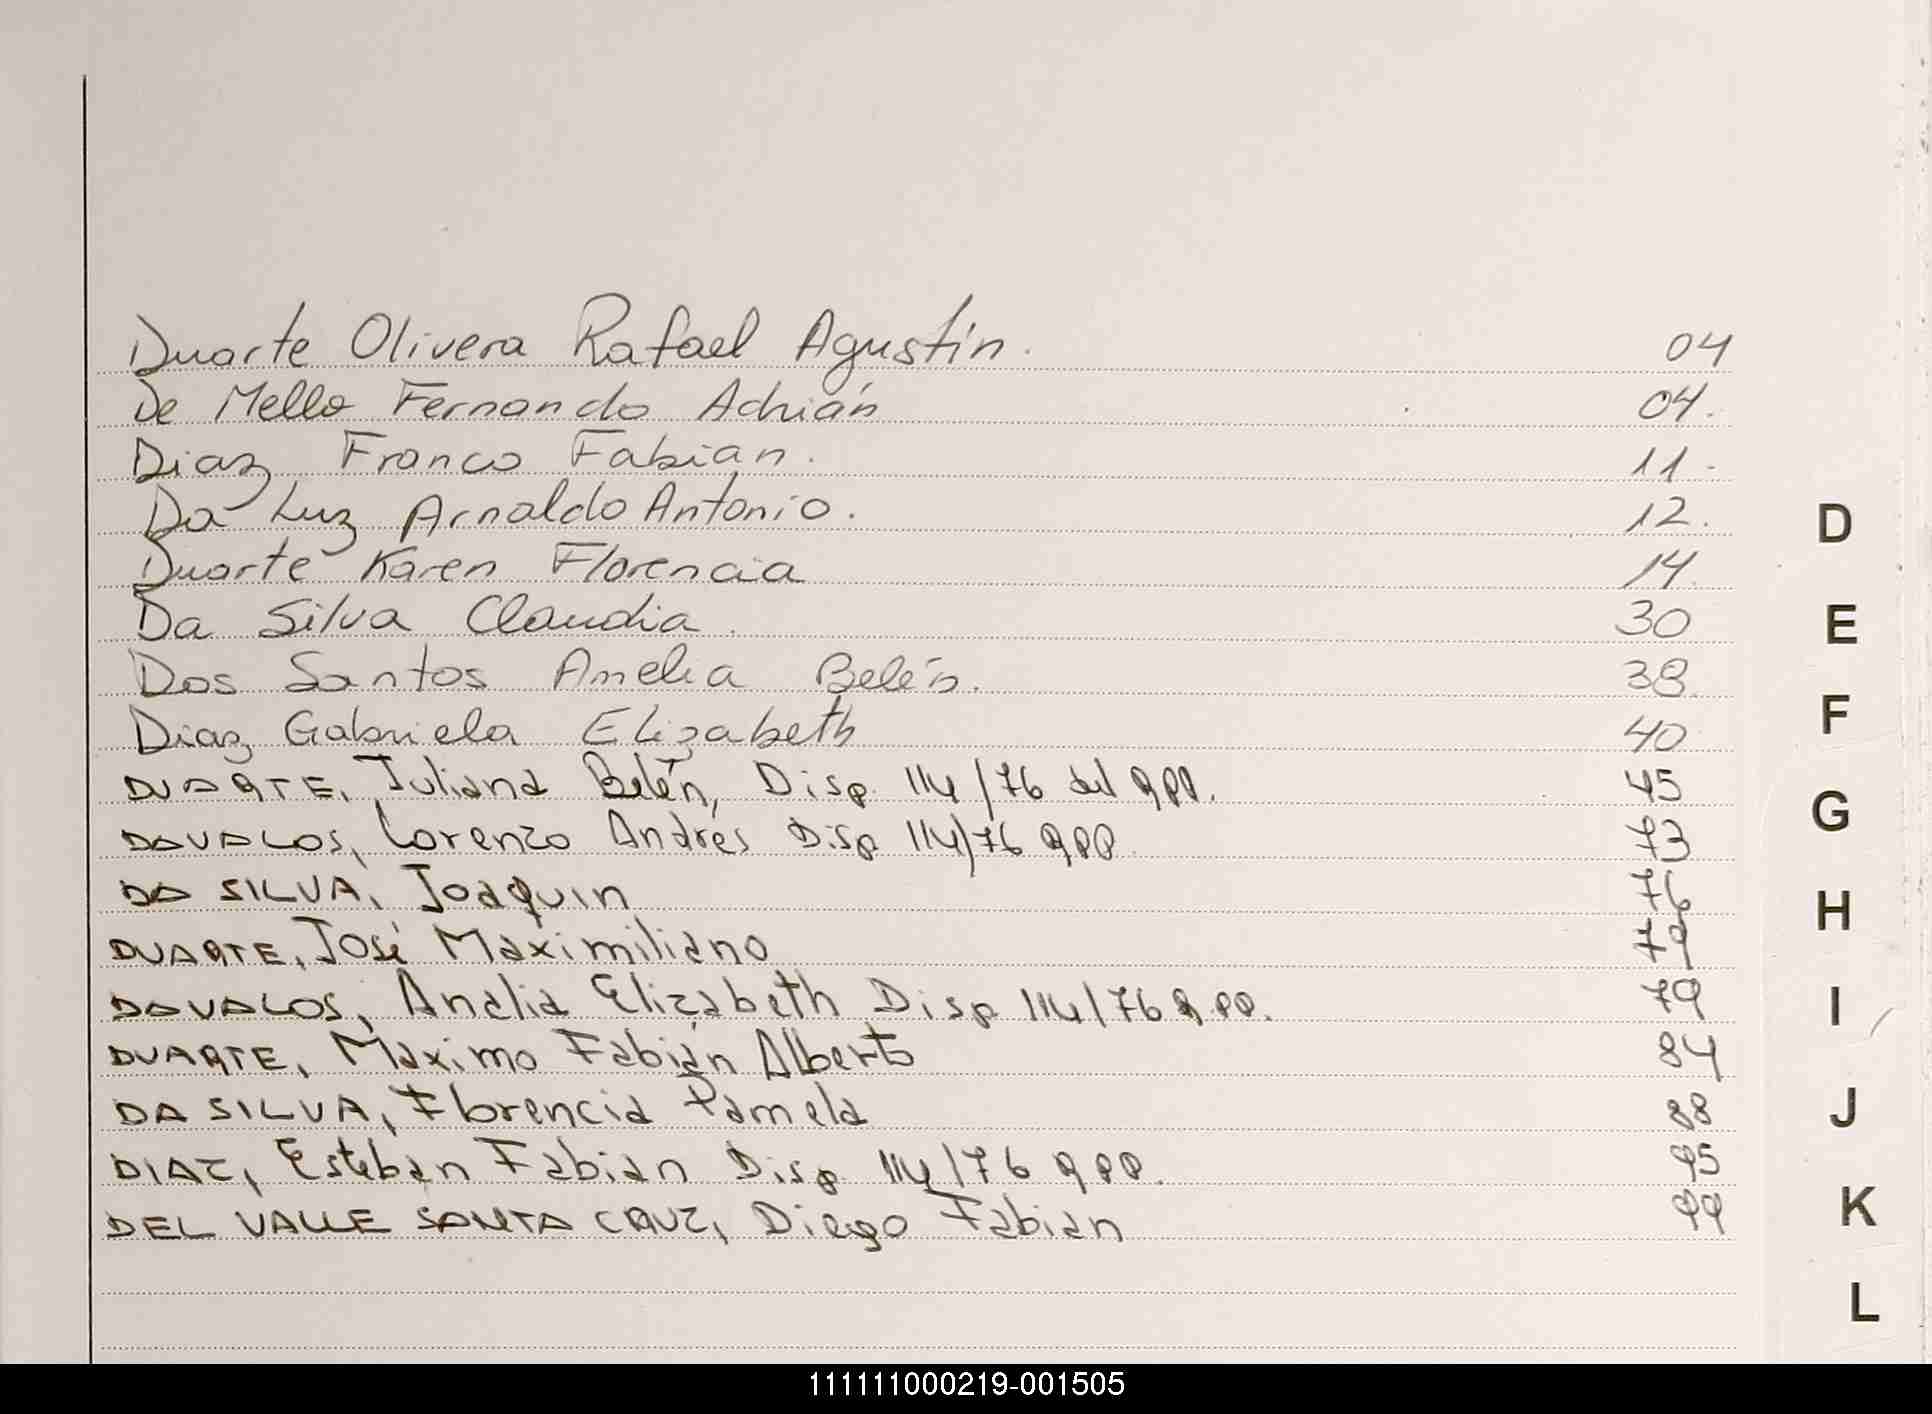 Duarte Olivera Rafael Agustín. 04
De Mello Fernando Adrián 04.
Diaz Franco Fabian. 11.
Da Luz Arnaldo Antonio. 12.
Duarte Karen Florencia 14.
Da Silva Claudia. 30
Dos Santos Amelia Belén. 38.
Diaz Gabriela Elizabeth 40
DUARTE, Juliana Belén, Disp. 114/76 del RPP. 45
DAVALOS, Lorenzo Andrés Disp 114/76 RPP 73
DA SILVA, Joaquin 76
DUARTE, José Maximiliano 79
DAVALOS, Analia Elizabeth Disp 114/76 RPP. 79
DUARTE, Maximo Fabián Alberto 84
DA SILVA, Florencia Pamela 88
DIAZ, Esteban Fabian Disp. 114/76 RPP. 95
DEL VALLE SANTA CRUZ, Diego Fabian 99
D
E
F
G
H
I
J
K
L
111111000219-001505